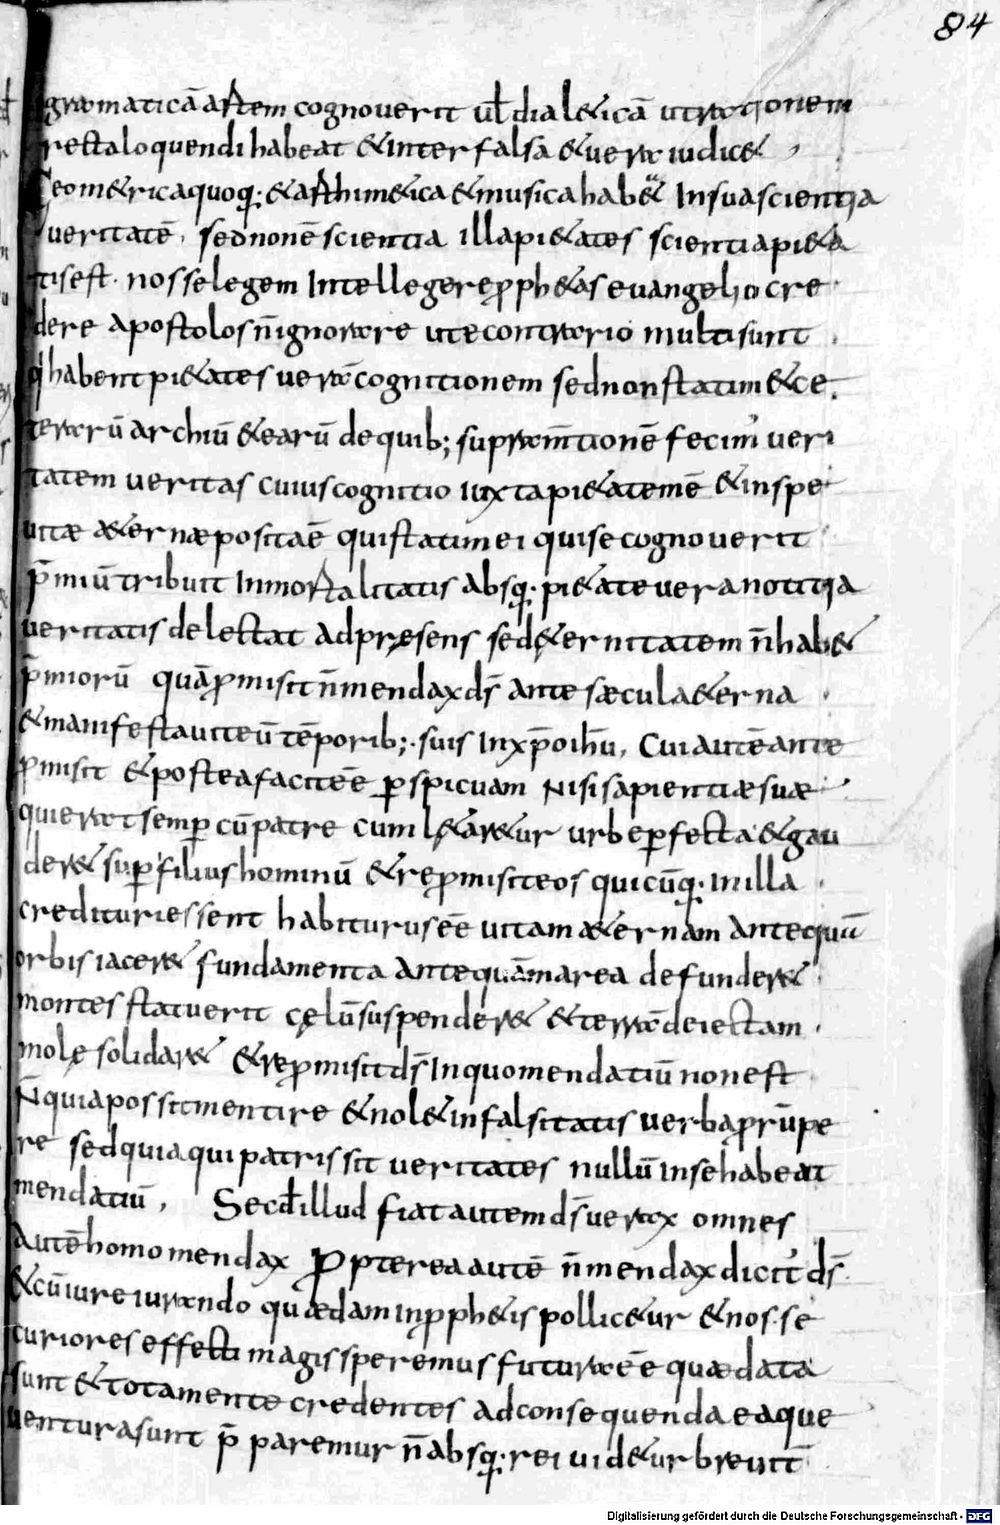 84
grammaticā artem cognoverit ul̄ dialeticā ut rationem
recta loquendi habeat & inter falsa & vera iudic&
Geom&rica quoq; & arithim&ica & musica hab& In sua scientia
veritatē, sed non ē scientia illa pi&ates scientia pi&a
tis est. nosse legem Intellegere ꝓph&as evangelio cre
dere apostolos n̄ ignorare ut e contrario multi sunt
q' habent pi&ates verā cognitionem sed non statim & ce
terarū archiū & earū de quib; supra m̄tionē fecim' veri
tatem veritas cuius cognitio iuxta pi&atem ē & in spe
vitæ æ&ernæ posita ē qui statim ei qui se cognoverit
p̄miū tribuit Inmortalitatis absq; pi&ate vera notitia
veritatis delectat ad pręsens sed ę&ernitatem n̄ hab&
p̄miorū quā ꝓmisit n̄ mendax ds̄ ante sæcula &erna
& manifestavit eū tēporib; suis In xp̄o ihū, Cui autē ante
ꝓmisit & postea facit eē ꝑspicuam Nisi sapientiæ suæ
qui erat semꝑ cū patre cum lę&ar&ur urbe ꝑfecta & gau
der& suꝑ filius hominū & reꝓmisit eos quicūq; in illa
credituri essent habiturus eē vitam æ&ernam Ante quū
orbis iacer& fundamenta Ante quā marea defunder&
montes statuerit cęlū suspender& & terrā deiectam
molę solidar& & reꝓmisit ds̄ In quo mendatiū non est
N̄ quia possit mentire & nol& in falsitatis verba prūpe
re sed quia qui patris sit veritates nullū in se habeat
mendatiū, Secd̄ illud fiat autem ds̄ verax omnes
Autē homo mendax ꝓpterea autē n̄ mendax dicit' ds̄
& cū iure iurando quædam in ꝓph&is pollic&ur & nos se
curiores effecti magis speremus futura eē quæ data
sunt & tota mente credentes ad consequenda ea que
ventura sunt p̄paremur n̄ absq; rei vid&ur breuit̄
Digitalisierung gefördert durch die Deutsche Forschungsgemeinschaft - DFG